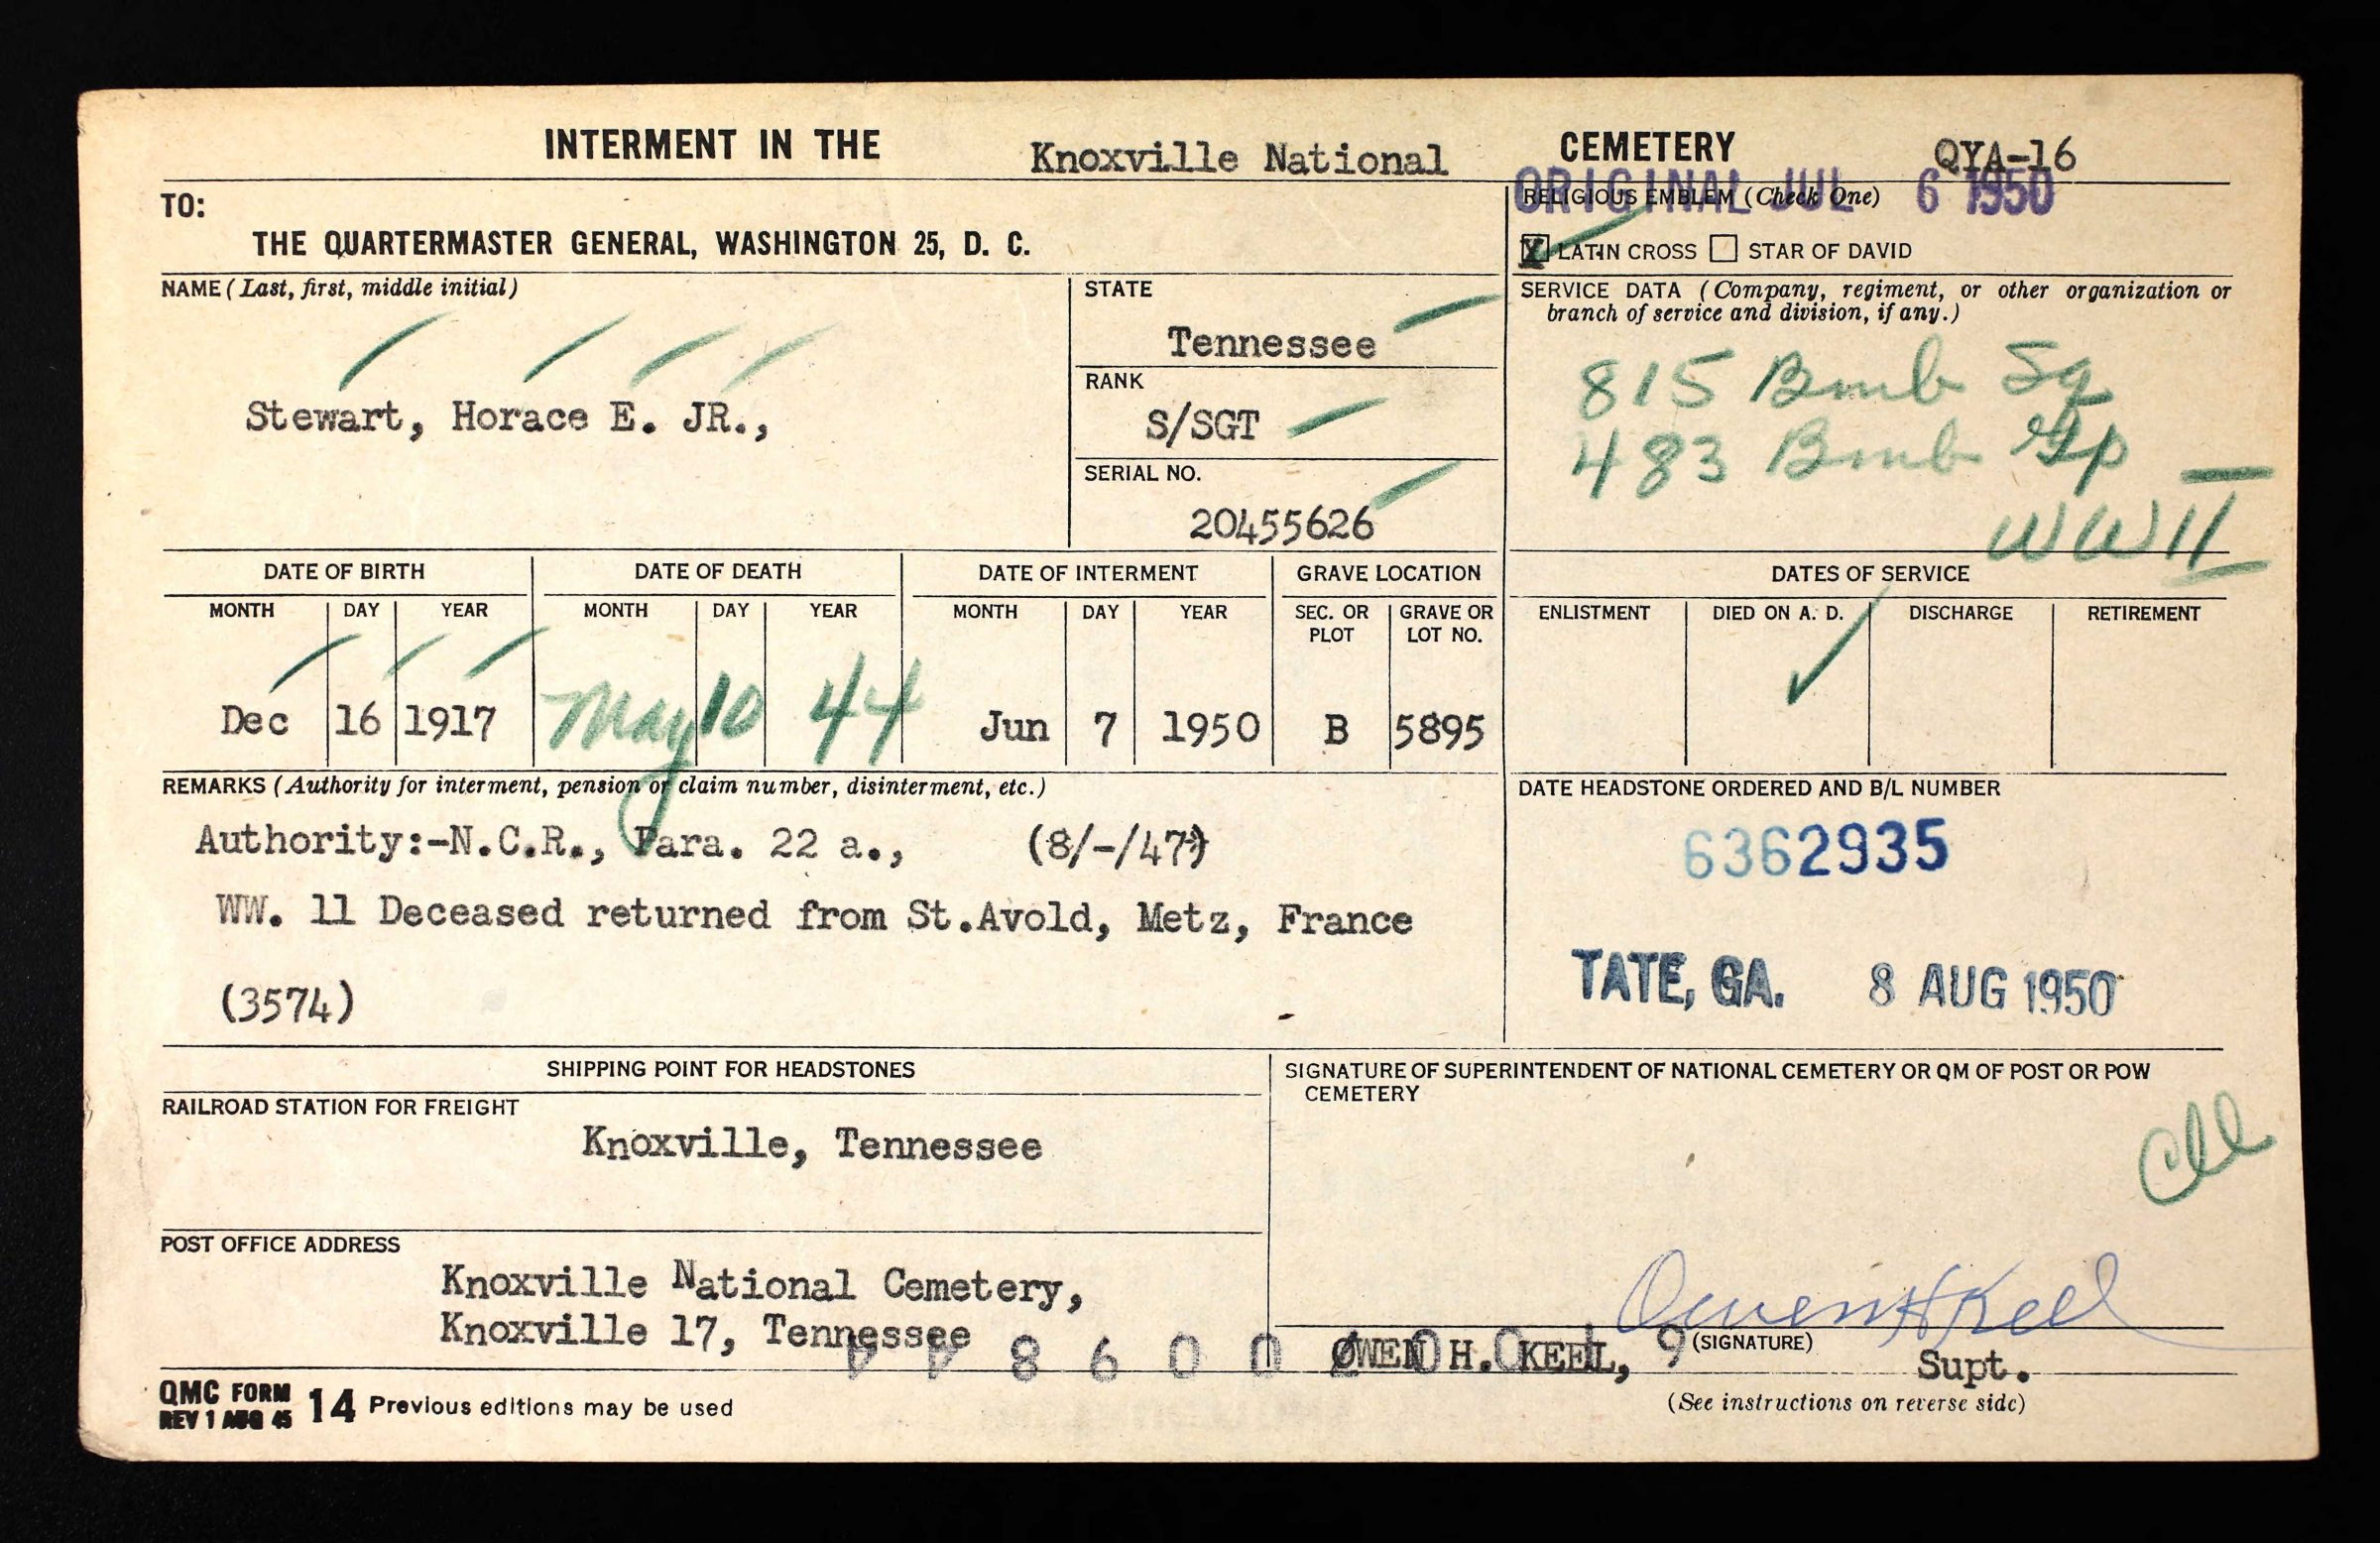 INTERMENT IN THE Knoxville National CEMETERY QYA-16
ORIGINAL JUL 6 1950
TO:
THE QUARTERMASTER GENERAL, WASHINGTON 25, D. C.
RELIGIOUS EMBLEM (Check One)
X LATIN CROSS STAR OF DAVID
NAME (Last, first, middle initial)
Stewart, Horace E. JR.,
STATE
Tennessee
RANK
S/SGT
SERIAL NO.
20455626
SERVICE DATA (Company, regiment, or other organization or
branch of service and division, if any.)
815 Bmb Sq
483 Bmb Gp
WW II
DATE OF BIRTH DATE OF DEATH DATE OF INTERMENT GRAVE LOCATION
MONTH DAY YEAR MONTH DAY YEAR MONTH DAY YEAR SEC. OR PLOT GRAVE OR LOT NO.
Dec 16 1917 May 10 44 Jun 7 1950 B 5895
DATES OF SERVICE
ENLISTMENT DIED ON A. D. DISCHARGE RETIREMENT
✓
REMARKS (Authority for interment, pension or claim number, disinterment, etc.)
Authority:-N.C.R., Para. 22 a., (8/-/47)
WW. 11 Deceased returned from St.Avold, Metz, France
(3574)
DATE HEADSTONE ORDERED AND B/L NUMBER
6362935
TATE, GA. 8 AUG 1950
SHIPPING POINT FOR HEADSTONES
RAILROAD STATION FOR FREIGHT
Knoxville, Tennessee
POST OFFICE ADDRESS
Knoxville National Cemetery,
Knoxville 17, Tennessee
SIGNATURE OF SUPERINTENDENT OF NATIONAL CEMETERY OR QM OF POST OR POW
CEMETERY
Owen H Keel
OWEN H. KEEL, (SIGNATURE) Supt.
QMC FORM 14 Previous editions may be used
REV 1 AUG 45
(See instructions on reverse side)